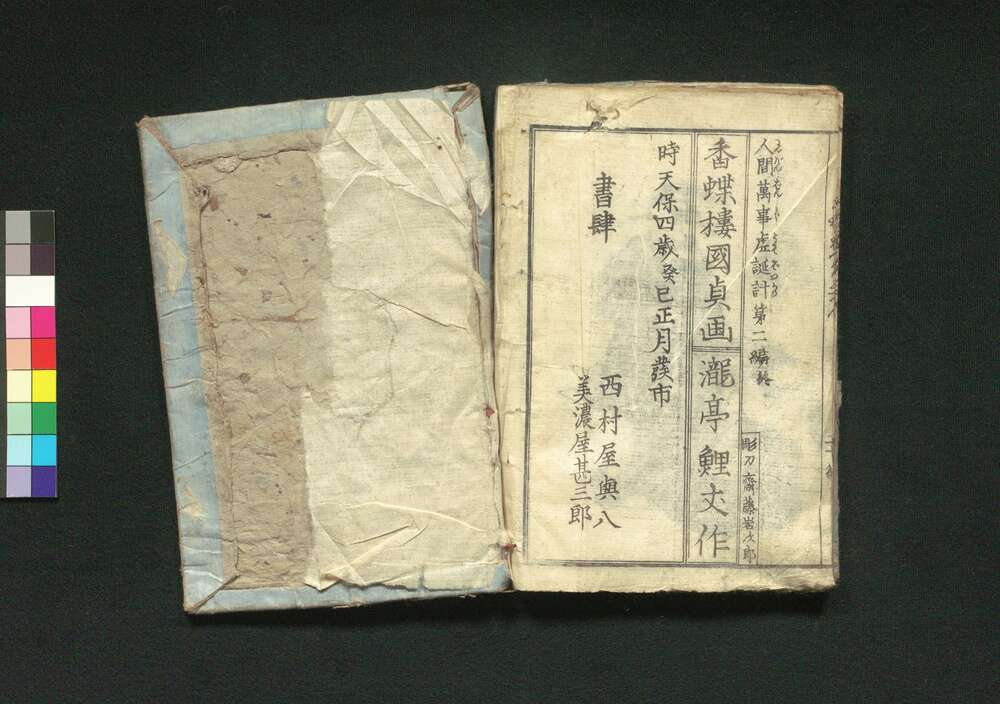 人間萬事虚誕計第二編終
彫刀 齋藤岩次郎
香蝶樓國貞画
瀧亭鯉丈作
時天保四歳癸巳正月發市
書肆
西村屋與八
美濃屋甚三郎